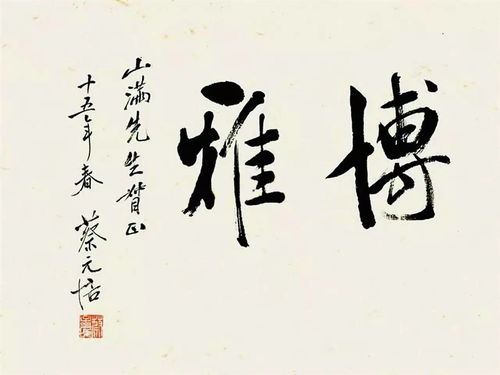 博雅
山满先生督正
十五年春 蔡元培